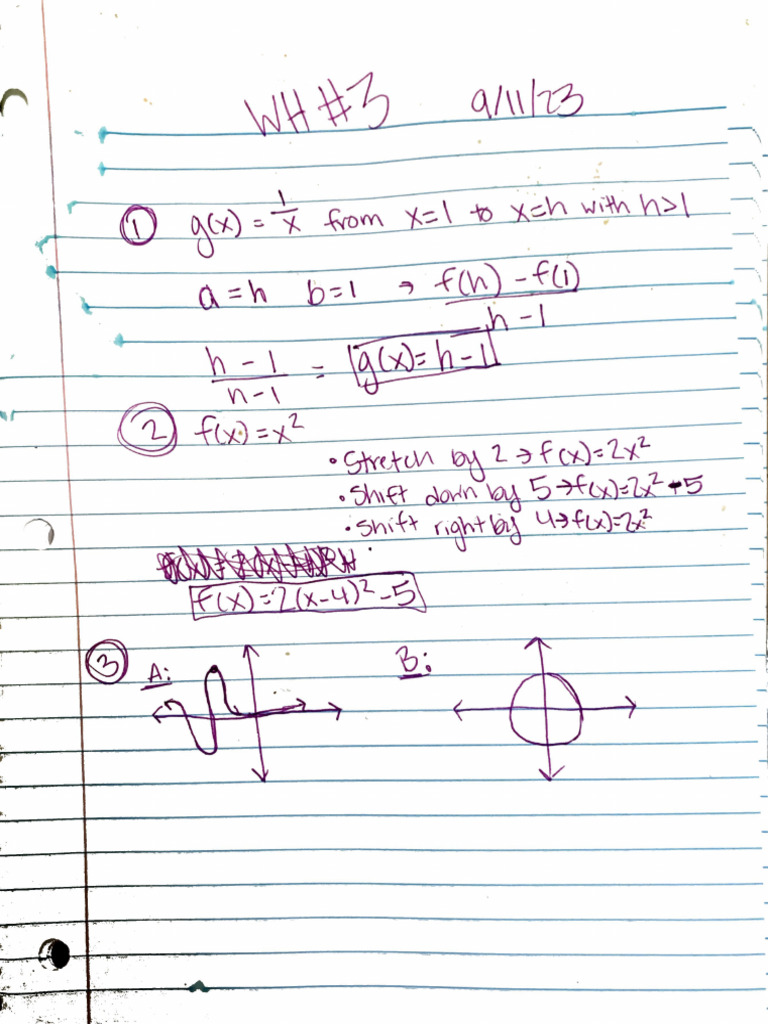 WH #3 9/11/23
① g(x) = 1/x from x=1 to x=h with h>1
a = h b = 1 → f(h) - f(1) / h - 1
h - 1 / h - 1 = g(x) = h - 1
② f(x) = x²
• Stretch by 2 → f(x) = 2x²
• Shift down by 5 → f(x) = 2x² - 5
• Shift right by 4 → f(x) = 2x²
f(x) = 2(x-4)² - 5
③ A: B: